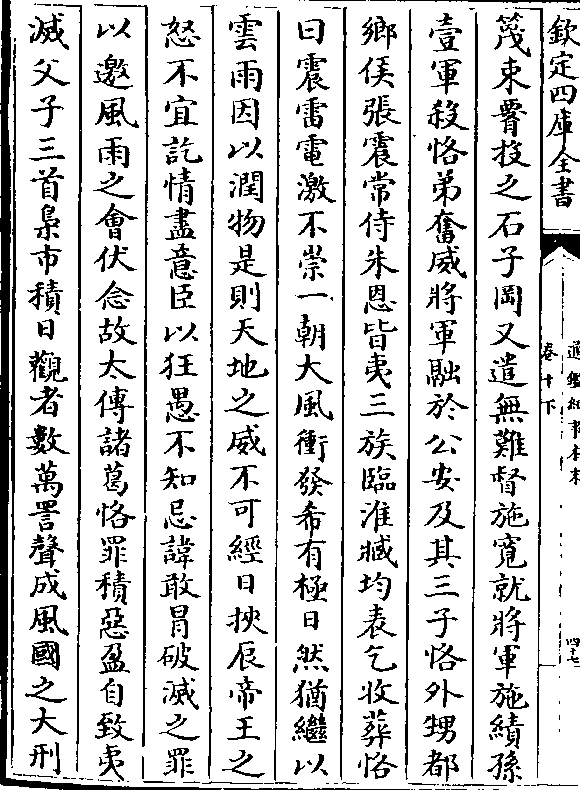 欽定四庫全書
通鑑紀事本末
卷十下
四十七
篾束臀投之石子岡又遣無難督施寛就將軍施績孫
壹軍殺恪弟奮威將軍融於公安及其三子恪外甥都
鄉侯張震常侍朱恩皆夷三族臨淮臧均表乞收葬恪
曰震雷電激不崇一朝大風衝發希有極日然猶繼以
雲雨因以潤物是則天地之威不可經日挾辰帝王之
怒不宜訖情盡意臣以狂愚不知忌諱敢冒破滅之罪
以邀風雨之會伏念故太傅諸葛恪罪積惡盈自致夷
滅父子三首梟市積日觀者數萬詈聲成風國之大刑